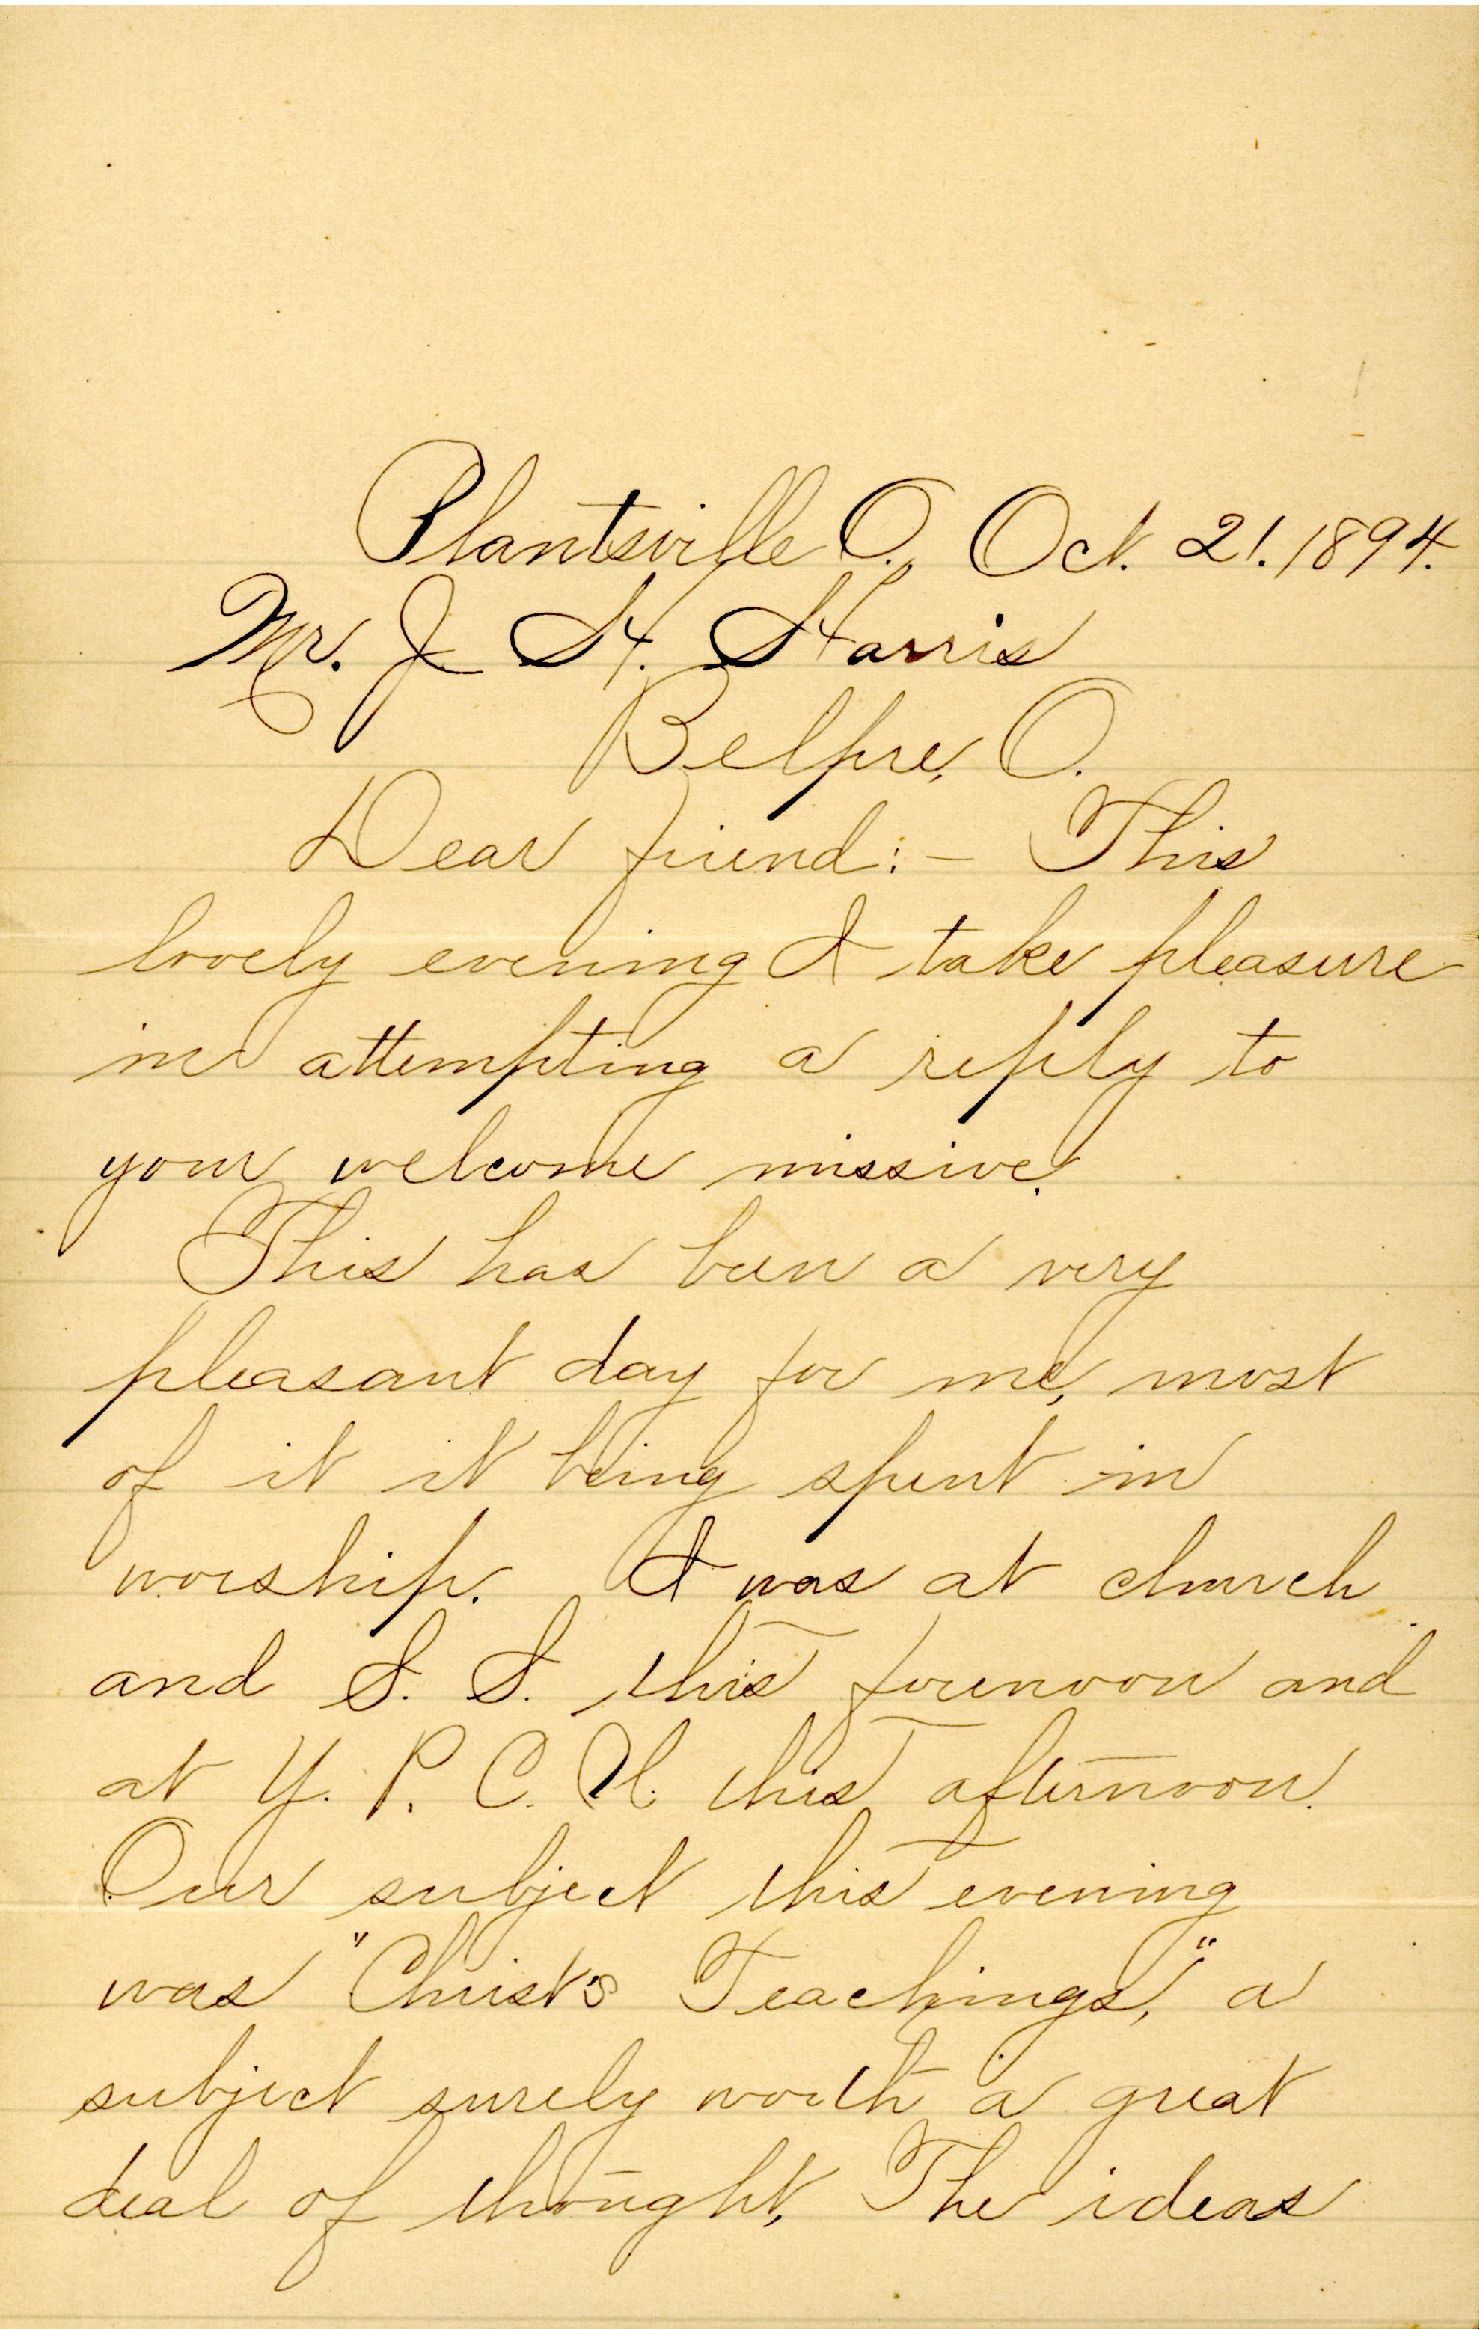 Plantsville O., Oct. 21. 1894.
Mr. J. H. Harris
Belpre, O.
Dear friend:- This
lovely evening I take pleasure
in attempting a reply to
your welcome missive.
This has been a very
pleasant day for me, most
of it it being spent in
worship. I was at church
and S. S. this forenoon and
at Y. P. C. U. this afternoon.
Our subject this evening
was "Christ's Teachings," a
subject surely worth a great
deal of thought. The ideas